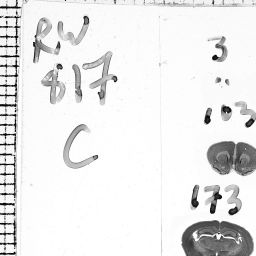 RW
817
C
3
103
173